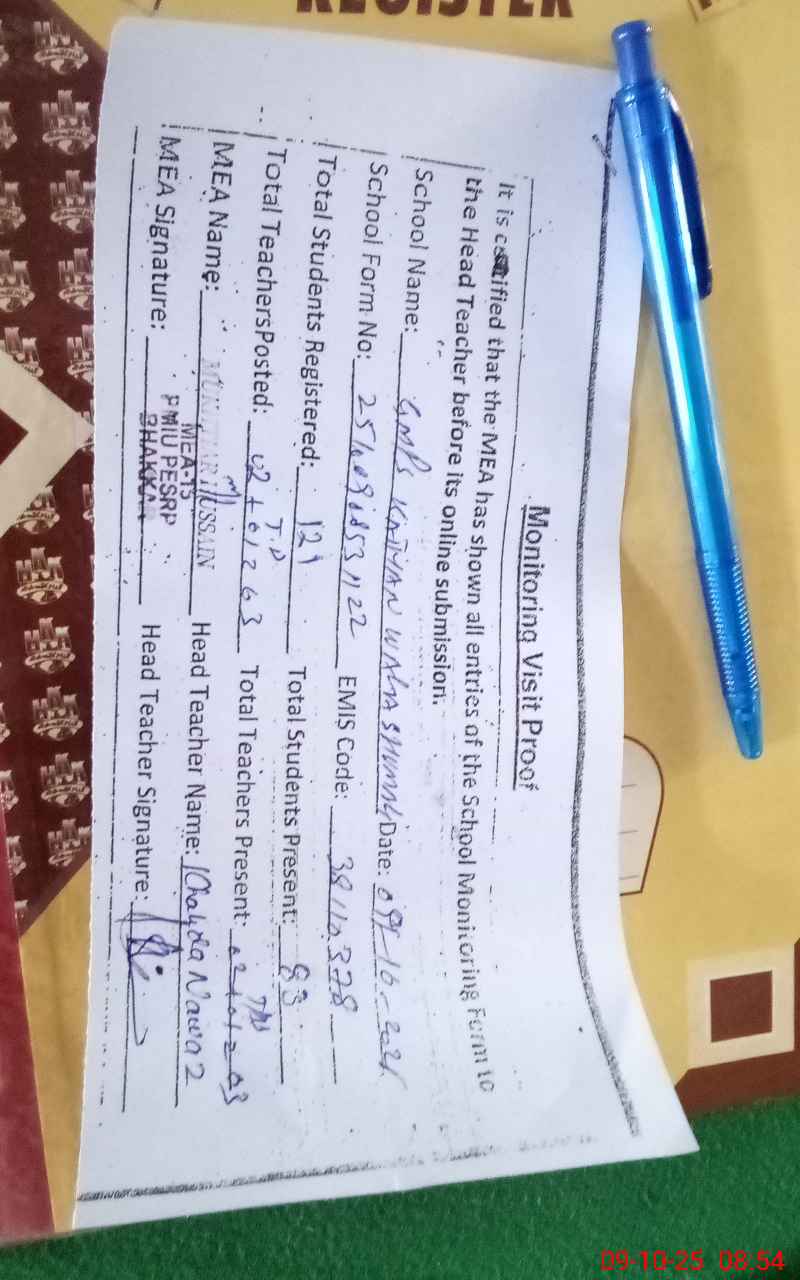 REGISTER
Monitoring Visit Proof
It is certified that the MEA has shown all entries of the School Monitoring Form to
the Head Teacher before its online submission.
School Name: GMPS Date: 09-10-2025
School Form No: EMIS Code: 38110378
Total Students Registered: 121 Total Students Present: 83
Total Teachers Posted: 02+01=03 Total Teachers Present: 02+01=03
MEA Name: MUKHTIAR HUSSAIN Head Teacher Name: Khalida Nawaz
MEA-13
PMIU PESRP
BHAKKAR
MEA Signature: Head Teacher Signature:
09-10-25 08:54